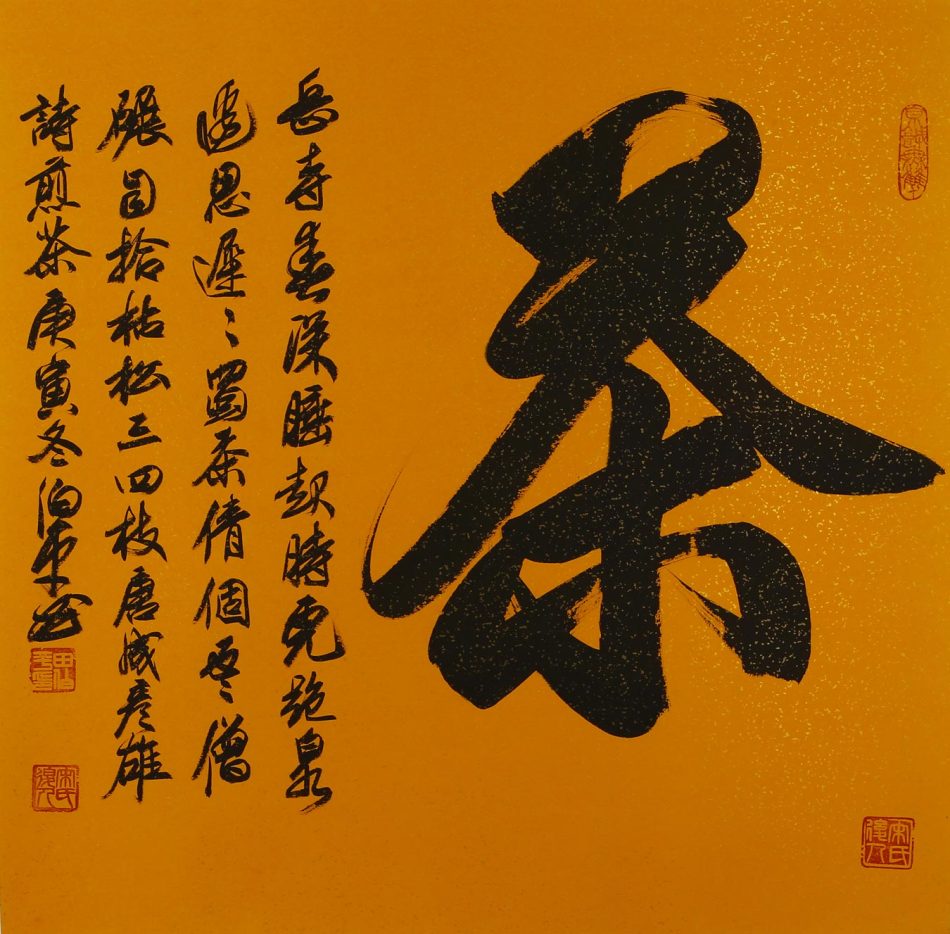 茶
岳寺春深睡起時虎跑泉
邊思遲〻蜀茶倩個雲僧
碾自拾枯松三四枝唐成彦雄
詩煎茶庚寅冬